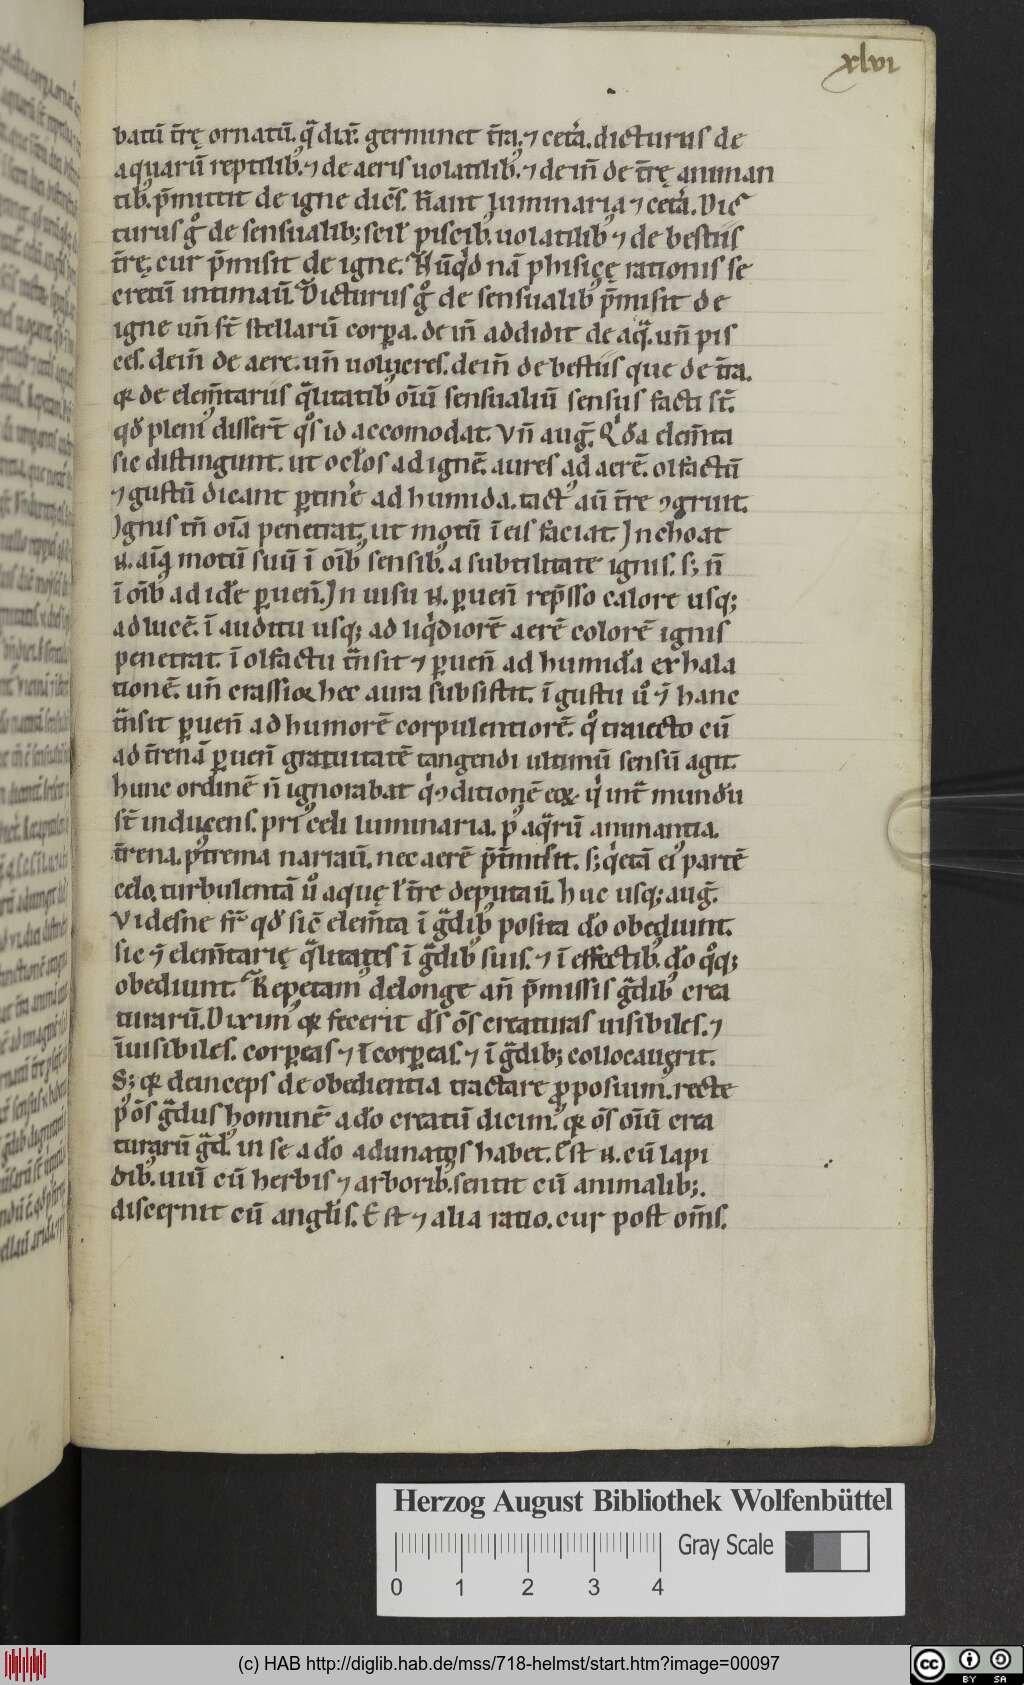 xlvi
batū t̄rę ornatū. q̄a dix̄. germinet t̄ra. ⁊ cet̄a. dicturus de
aquarū reptilib᷒. ⁊ de aeris uolatilib᷒. ⁊ dein̄ de t̄rę animan
tib᷒. p̄mittit de igne dicēs. Fiant luminaria ⁊ cet̄a. Dic
turus gͦ de sensualib; scil' piscib᷒. uolatilib᷒ ⁊ de bestiis
t̄rę. cur p̄misit de igne. Nūqͥd nā phisicę rationis se
cretū intimaū. Dicturus gͦ de sensualib᷒ p̄misit de
igne un̄ st̄ stellarū corpa. dein̄ addidit de aq̄. un̄ pis
ces. dein̄ de aere. un̄ uolucres. dein̄ de bestiis que de t̄ra.
qꝛ de elem̄tariis q̄litatib᷒ oīū sensualiū sensus facti st̄.
qd̄ pleni᷒ dissert̄ qͦs id accomodat. Vn̄ auḡ. Qͥda elem̄ta
sic distingunt. ut oclōs ad ignē. aures ad aerē. olfactū
⁊ gustū dicant ptinēe ad humida. tact᷒ aū t̄re ꝯgruit.
Ignis tn̄ oīa penetrat. ut motū ī eis faciat. Inchoat
.n. aīa motū suū ī oīb᷒ sensib᷒. a subtilitate ignis. s; n̄
ī oīb᷒ ad idē puen̄. In uisu .n. puen̄ rep̄sso calore usq;
ad lucē. ī auditu usq; ad liqͥdiorē aerē colorē ignis
penetrat. ī olfactu t̄nsit ⁊ puen̄ ad humida exhala
tionē. un̄ crassioꝛ hec aura subsistit. ī gustu uͦ ⁊ hanc
t̄nsit puen̄ ad humorē corpulentiorē. qͦ traiecto cū
ad t̄renā puen̄ grauitatē tangendi ultimū sensū agit.
hunc ordinē n̄ ignorabat qͥ ꝯditionē eoꝝ qͥ int̄ mundū
st̄ inducens. pri᷒ celi luminaria. p᷒ aq̄rū animantia.
t̄rena. p᷒trema narraū. nec aerē p̄t̄misit. s; qͥetā ei᷒ partē
celo. turbulentā uͦ aquę l' t̄re deputaū. huc usq; auḡ.
Videsne fr̄ qd̄ sic elem̄ta ī ḡdib᷒ posita dō obediunt.
sic ⁊ elem̄tarię q̄litates ī ḡdib᷒ suis. ⁊ ī effectib᷒. dō qͦq;
obediunt. Repetam᷒ delonge an̄ p̄missis ḡdib᷒ crea
turarū. Dixim᷒ qꝛ fecerit ds̄ os̄ creaturas uisibiles. ⁊
īuisibiles. corpeas ⁊ īcorpeas. ⁊ ī ḡdib; collocauerit.
S; qꝛ deinceps de obedientia tractare pposuim᷒. recte
p᷒ os̄ ḡdus hominē a dō creatū dicim᷒. qꝛ os̄ oīū crea
turarū ḡd᷒ in se a dō adunatos habet. Est .n. cū lapi
dib᷒. uiū cū herbis ⁊ arborib᷒. sentit cū animalib;.
discernit cū anglīs. Est ⁊ alia ratio. cur post om̄s.
Herzog August Bibliothek Wolfenbüttel
Gray Scale
0 1 2 3 4
(c) HAB http://diglib.hab.de/mss/718-helmst/start.htm?image=00097
cc BY SA